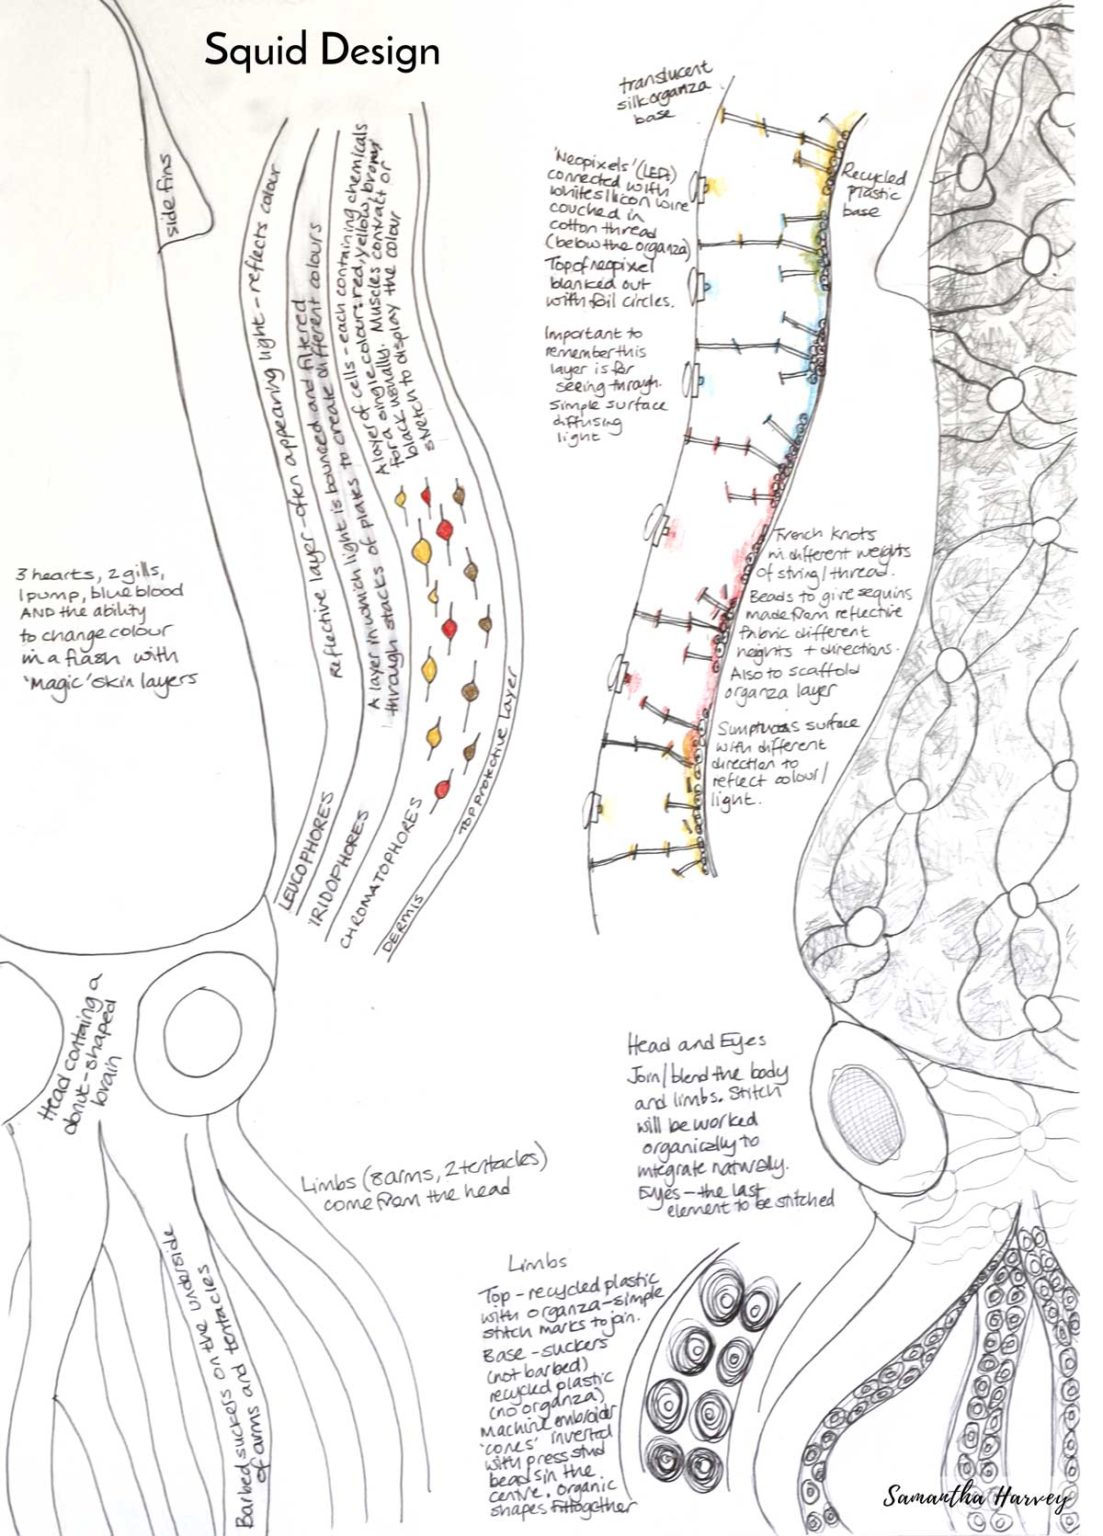 Squid Design
side fins
3 hearts, 2 gills,
1 pump, blue blood
AND the ability
to change colour
in a flash with
'magic' skin layers
Reflective layer - often appearing light - reflects colour
LEUCOPHORES
A layer in which light is bounced and filtered
through stacks of plates to create different colours
IRIDOPHORES
A layer of cells - each containing chemicals
for a single colour: red, yellow, brown,
black usually. Muscles contract or
stretch to display the colour
CHROMATOPHORES
DERMIS
Top protective layer
Head containing a
donut-shaped
brain
Limbs (8 arms, 2 tentacles)
come from the head
Barbed suckers on the underside
of arms and tentacles
translucent
silk organza
base
'Neopixels' (LED)
connected with
white silicon wire
couched in
cotton thread
(below the organza)
Top of neopixel
blanked out
with foil circles.
Important to
remember this
layer is for
seeing through.
Simple surface
diffusing
light
Recycled
plastic
base
French knots
in different weights
of string/thread.
Beads to give sequins
made from reflective
fabric different
heights + directions.
Also to scaffold
organza layer
Sumptuous surface
with different
direction to
reflect colour/
light.
Head and Eyes
Join/blend the body
and limbs. Stitch
will be worked
organically to
integrate naturally.
Eyes - the last
element to be stitched
Limbs
Top - recycled plastic
with organza - simple
stitch marks to join.
Base - suckers
(not barbed)
recycled plastic
(no organza)
Machine embroider
'cones' inverted
with press stud
beads in the
centre. Organic
shapes fit together
Samantha Harvey